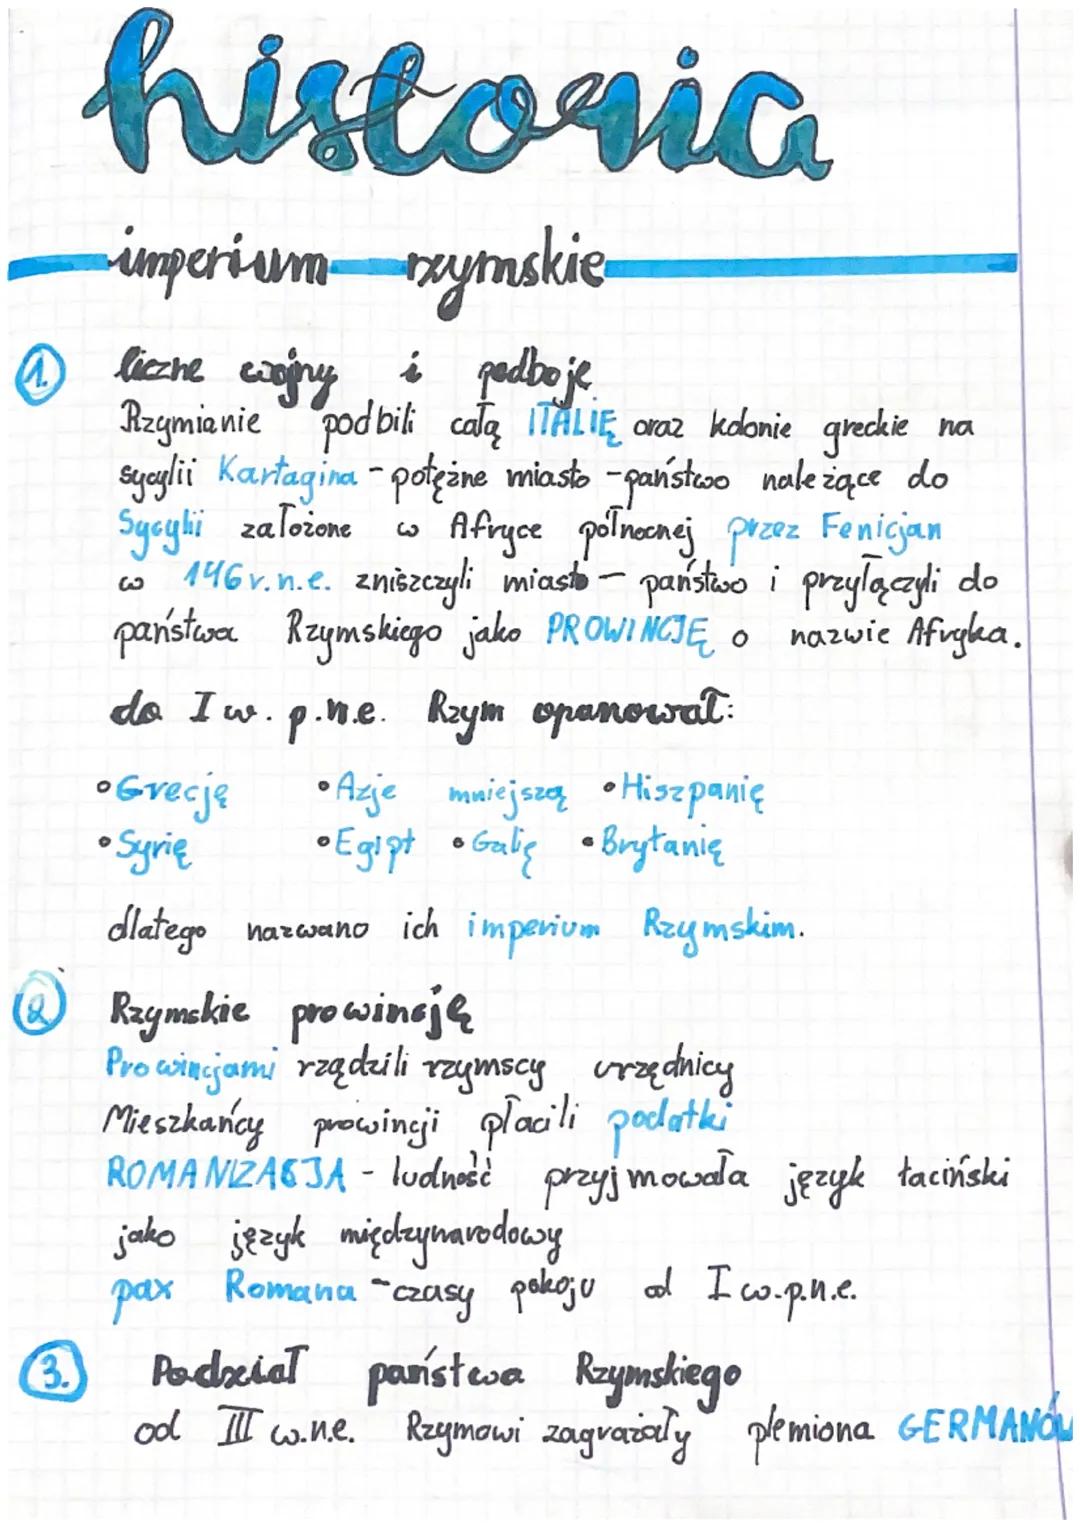 historia
imperium rzymskie
1. liczne wojny i podboje
Rzymianie podbili całą ITALIĘ oraz kolonie greckie na
sycylii Kartagina - potężne miasto - państwo należące do
Sycylii założone w Afryce północnej przez Fenicjan
w 146 r. n.e. zniszczyli miasto - państwo i przyłączyli do
państwa Rzymskiego jako PROWINCJĘ o nazwie Afryka.
do I w. p.n.e. Rzym opanował:
• Grecję • Azje mniejszą • Hiszpanię
• Syrię • Egipt • Galię • Brytanię
dlatego nazwano ich imperium Rzymskim.
2. Rzymskie prowincję
Prowincjami rządzili rzymscy urzędnicy
Mieszkańcy prowincji płacili podatki
ROMANIZACJA - ludność przyjmowała język łaciński
jako język międzynarodowy
pax Romana - czasy pokoju od I w.p.n.e.
3. Podział państwa Rzymskiego
od III w.n.e. Rzymowi zagrażały plemiona GERMANÓW